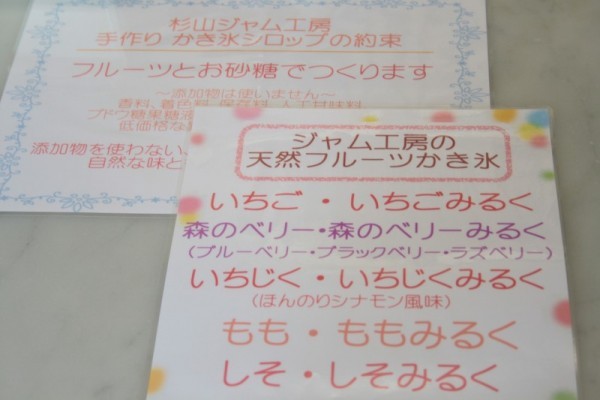 杉山ジャム工房
手作り かき氷シロップの約束
フルーツとお砂糖でつくります
～添加物は使いません～
香料、着色料、保存料、人工甘味料
ブドウ糖果糖液
低価格な
添加物を使わない、
自然な味と
ジャム工房の
天然フルーツかき氷
いちご・いちごみるく
森のベリー・森のベリーみるく
(ブルーベリー・ブラックベリー・ラズベリー)
いちじく・いちじくみるく
(ほんのりシナモン風味)
もも・ももみるく
しそ・しそみるく